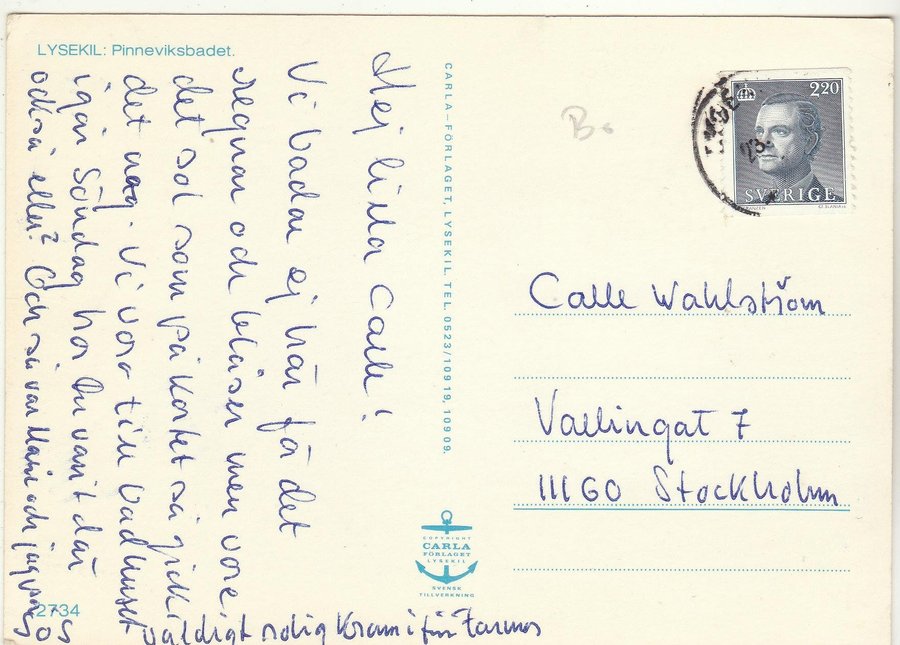 LYSEKIL: Pinneviksbadet.
Hej lilla Calle!
Vi badar ej här få det
regnar och blåser men vore
det sol som på kortet så gick
det nog. Vi vora till badhuset
igår Söndag har Du varit där
också eller? Och så var Mari och jag
väldigt rolig Kram i från Farmor
CARLA-FÖRLAGET, LYSEKIL. TEL. 0523/109 19, 109 09.
COPYRIGHT
CARLA
FÖRLAGET
LYSEKIL
SVENSK
TILLVERKNING
2734
B.
220
SVERIGE
Calle Wahlström
Vallingat 7
111 60 Stockholm